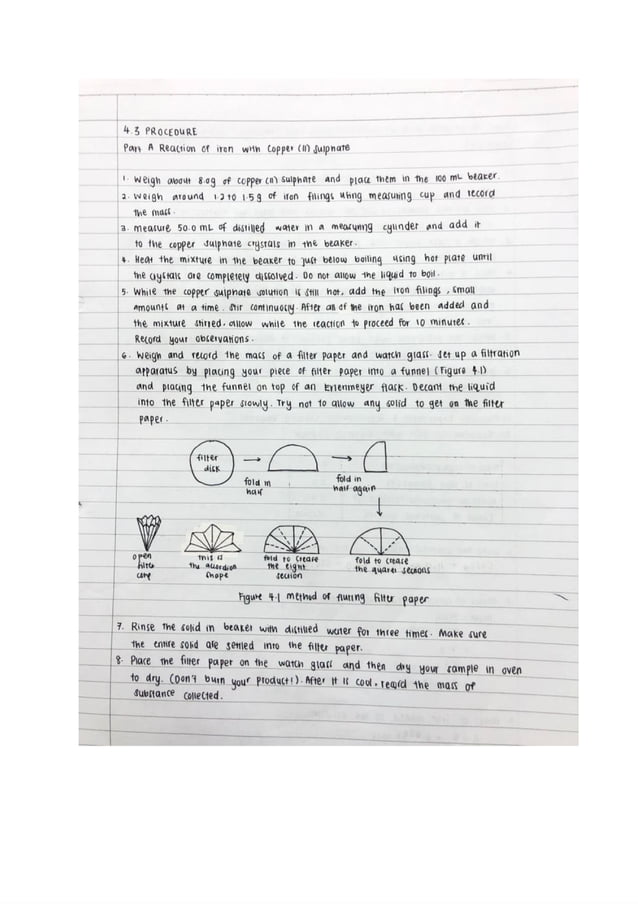 4.3 PROCEDURE
Part A Reaction of iron with Copper (II) Sulphate
1. Weigh about 8.0g of copper (II) sulphate and place them in the 100 mL beaker.
2. Weigh around 1.2 to 1.5 g of iron filings using measuring cup and record
the mass.
3. measure 50.0 mL of distilled water in a measuring cylinder and add it
to the copper sulphate crystals in the beaker.
4. Heat the mixture in the beaker to just below boiling using hot plate until
the crystals are completely dissolved. Do not allow the liquid to boil.
5. While the copper sulphate solution is still hot, add the iron filings, small
amounts at a time. Stir continuosly. After all of the iron has been added and
the mixture stirred, allow while the reaction to proceed for 10 minutes.
Record your observations.
6. Weigh and record the mass of a filter paper and watch glass. Set up a filtration
apparatus by placing your piece of filter paper into a funnel (Figure 4.1)
and placing the funnel on top of an Erlenmeyer flask. Decant the liquid
into the filter paper slowly. Try not to allow any solid to get on the filter
paper.
filter
disk
fold in
half
fold in
half again
open
filter
cone
This is
the accordion
shape
fold to crease
the eight
section
fold to crease
the quarter sections
Figure 4.1 method of fluting filter paper
7. Rinse the solid in beaker with distilled water for three times. Make sure
the entire solid are settled into the filter paper.
8. Place the filter paper on the watch glass and then dry your sample in oven
to dry. (Don't burn your product!). After it is cool, record the mass of
substance collected.